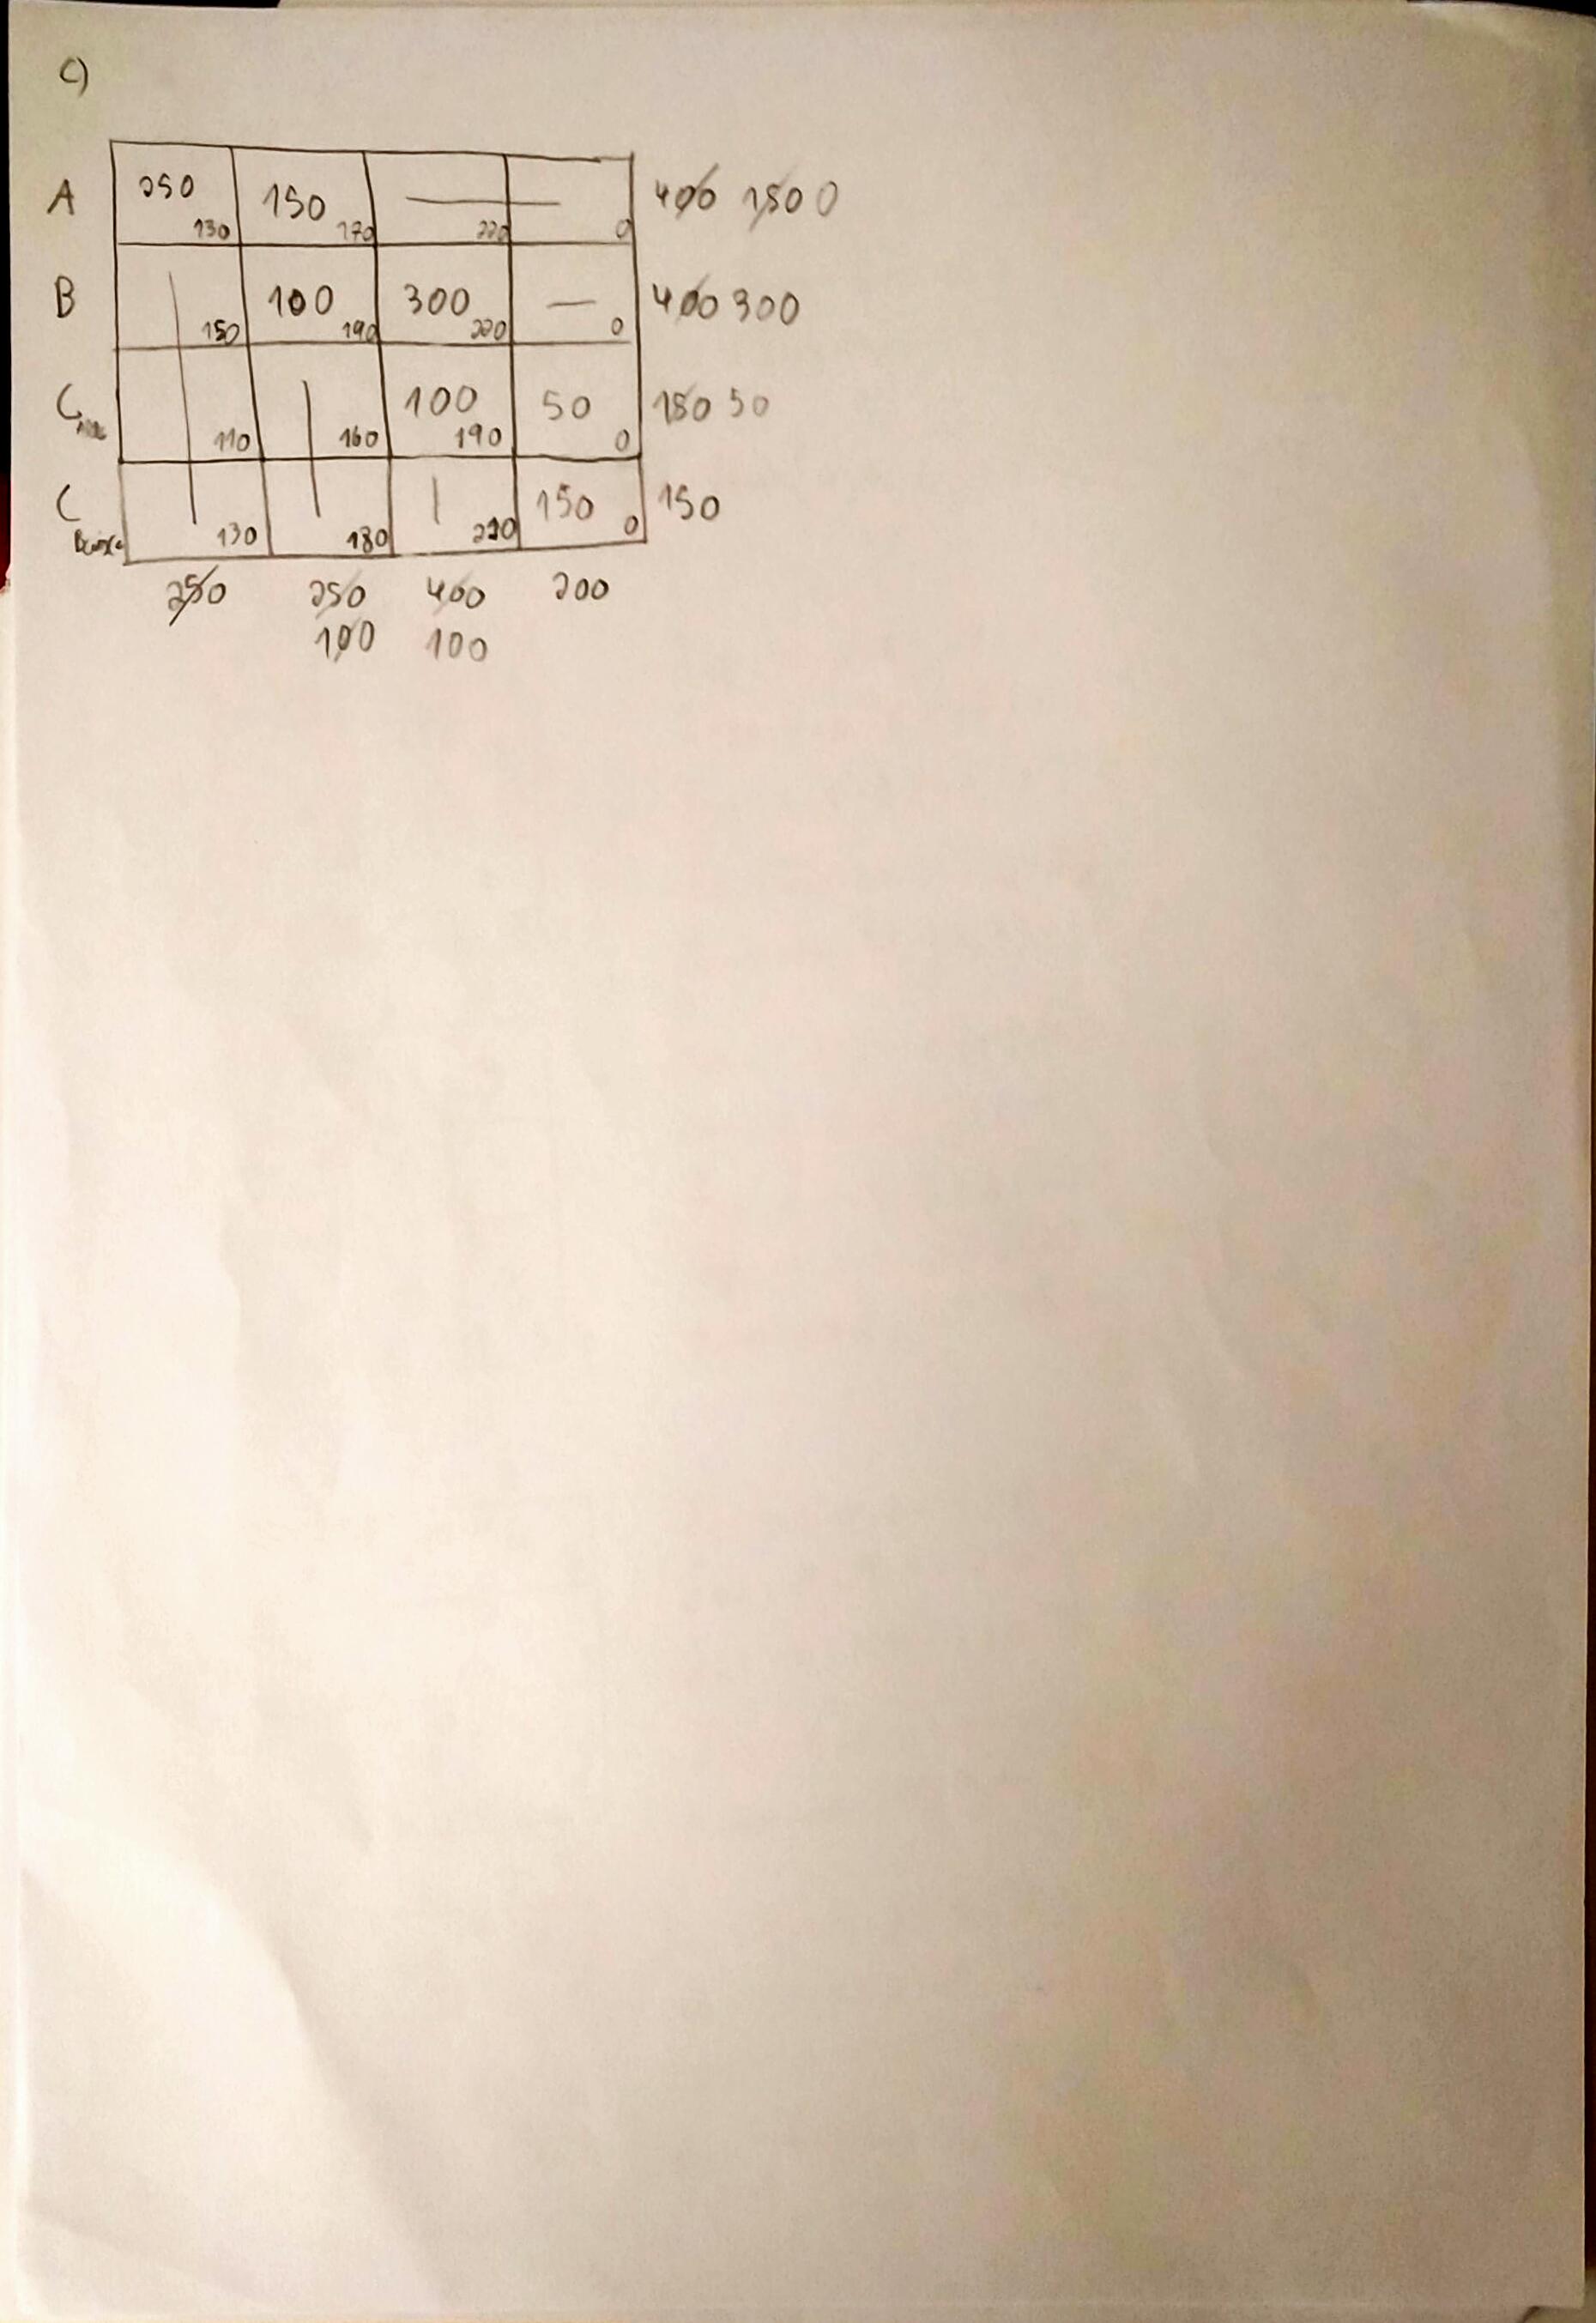 C)
A 250 130 150 170 220 0 400 150 0
B 150 100 190 300 220 0 400 300
C 110 160 100 190 50 0 150 50
C Baixa 130 180 210 150 0 150
250 250 400 200
100 100